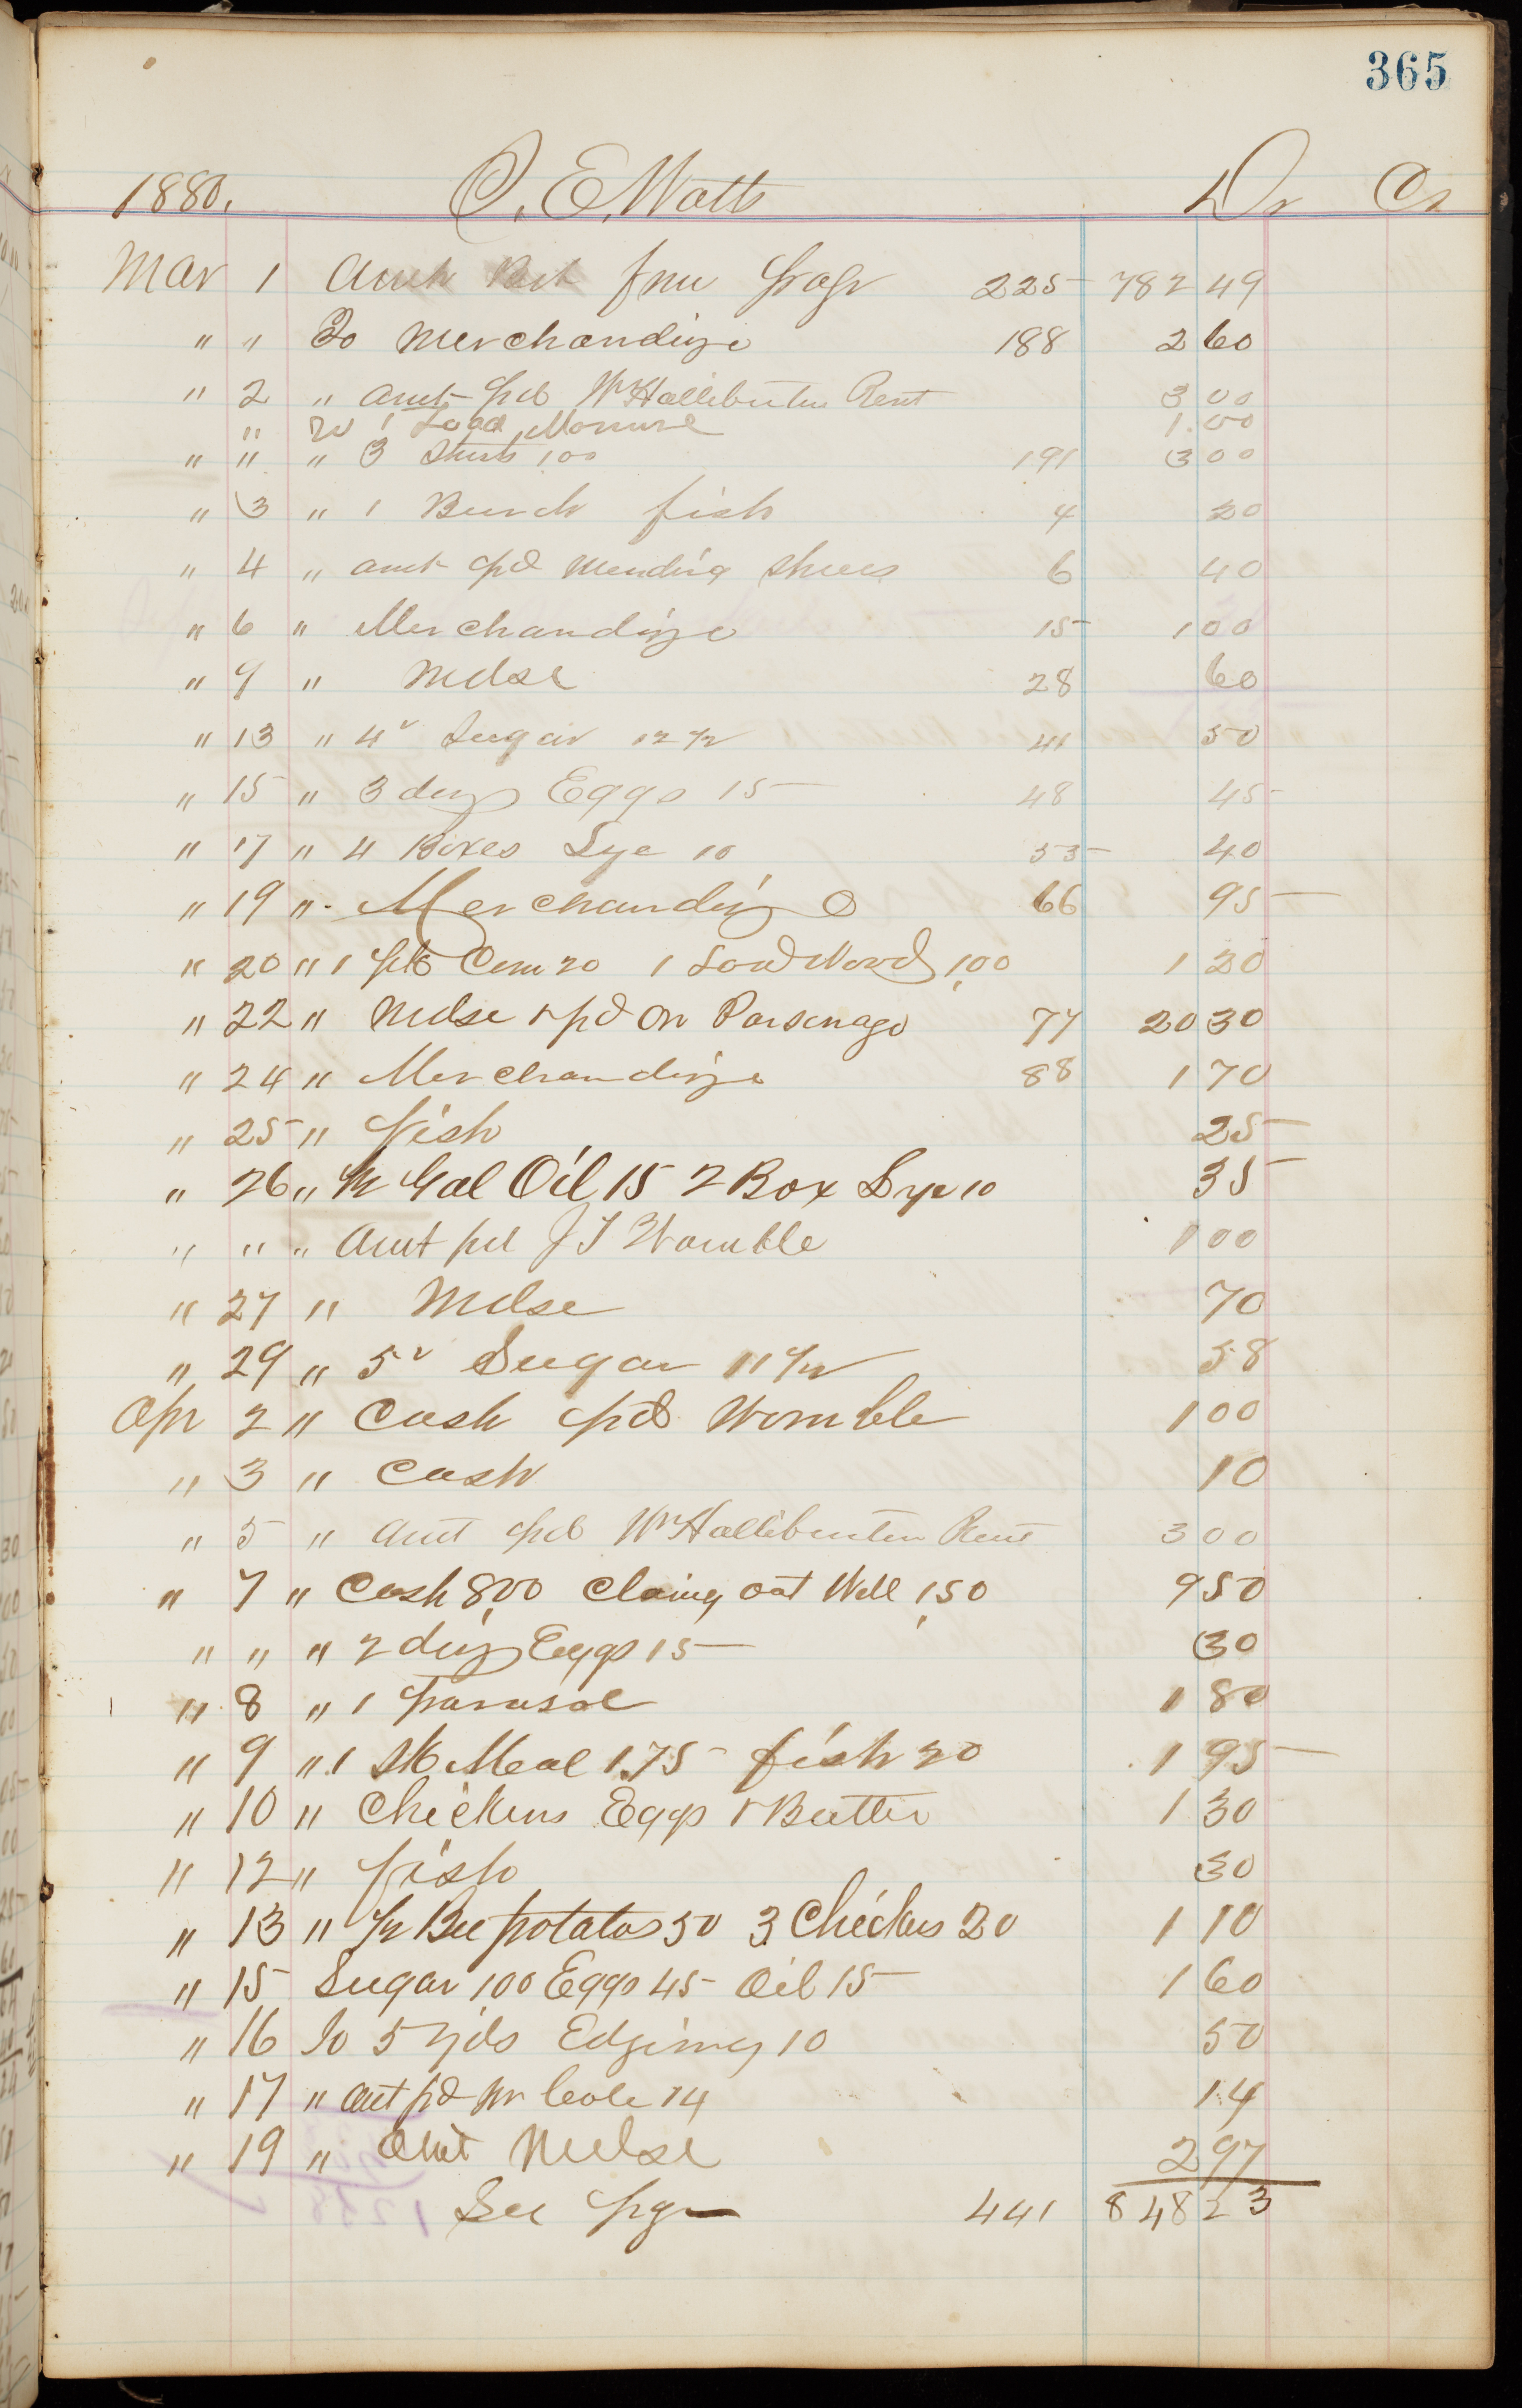 365
1880. O. E. Watts Dr Cr
Mar 1 Amt from page 225 782 49
" " To Merchandize 188 2 60
" 2 " Amt pd Wm Halliburton Rent 3 00
" To 1 Load Manure 1.00
" " " 3 Shirts 100 191 3 00
" 3 " 1 Bunch fish 4 20
" 4 " amt pd Mending Shoes 6 40
" 6 " Merchandize 15 1 00
" 9 " Mdse 28 60
" 13 " 4 Sugar 12 1/2 41 50
" 15 " 3 doz Eggs 15 48 45
" 17 " 4 Boxes Lye 10 55 40
" 19 " Merchandize 66 95
" 20 " 1 20 1 Load Wood 1,00 1 20
" 22 " Mdse & pd on Parsonage 77 20 30
" 24 " Merchandize 88 1 70
" 25 " fish 25
" 26 " Gal Oil 15 2 Box Lye 10 35
" " " Amt pd J T Womble 1 00
" 27 " Mdse 70
" 29 " 5 Sugar 11 1/2 58
Apr 2 " Cash pd Womble 1 00
" 3 " Cash 10
" 5 " Amt pd Wm Halliburton Rent 3 00
" 7 " Cash 8,00 Claing out Well 1,50 9 50
" " " 2 doz Eggs 15 30
" 8 " 1 Parasol 1 80
" 9 " 1 Sk Meal 1.75 fish 20 1 95
" 10 " Chickens Eggs & Butter 1 30
" 12 " fish 30
" 13 " 1/2 Bu potatos 50 3 Chickens 20 1 10
" 15 Sugar 1,00 Eggs 45 Oil 15 1 60
" 16 To 5 yds Edging 10 50
" 17 " Amt pd Mr Cole 14 14
" 19 " Amt Mdse 2 97
See pg 441 848 23